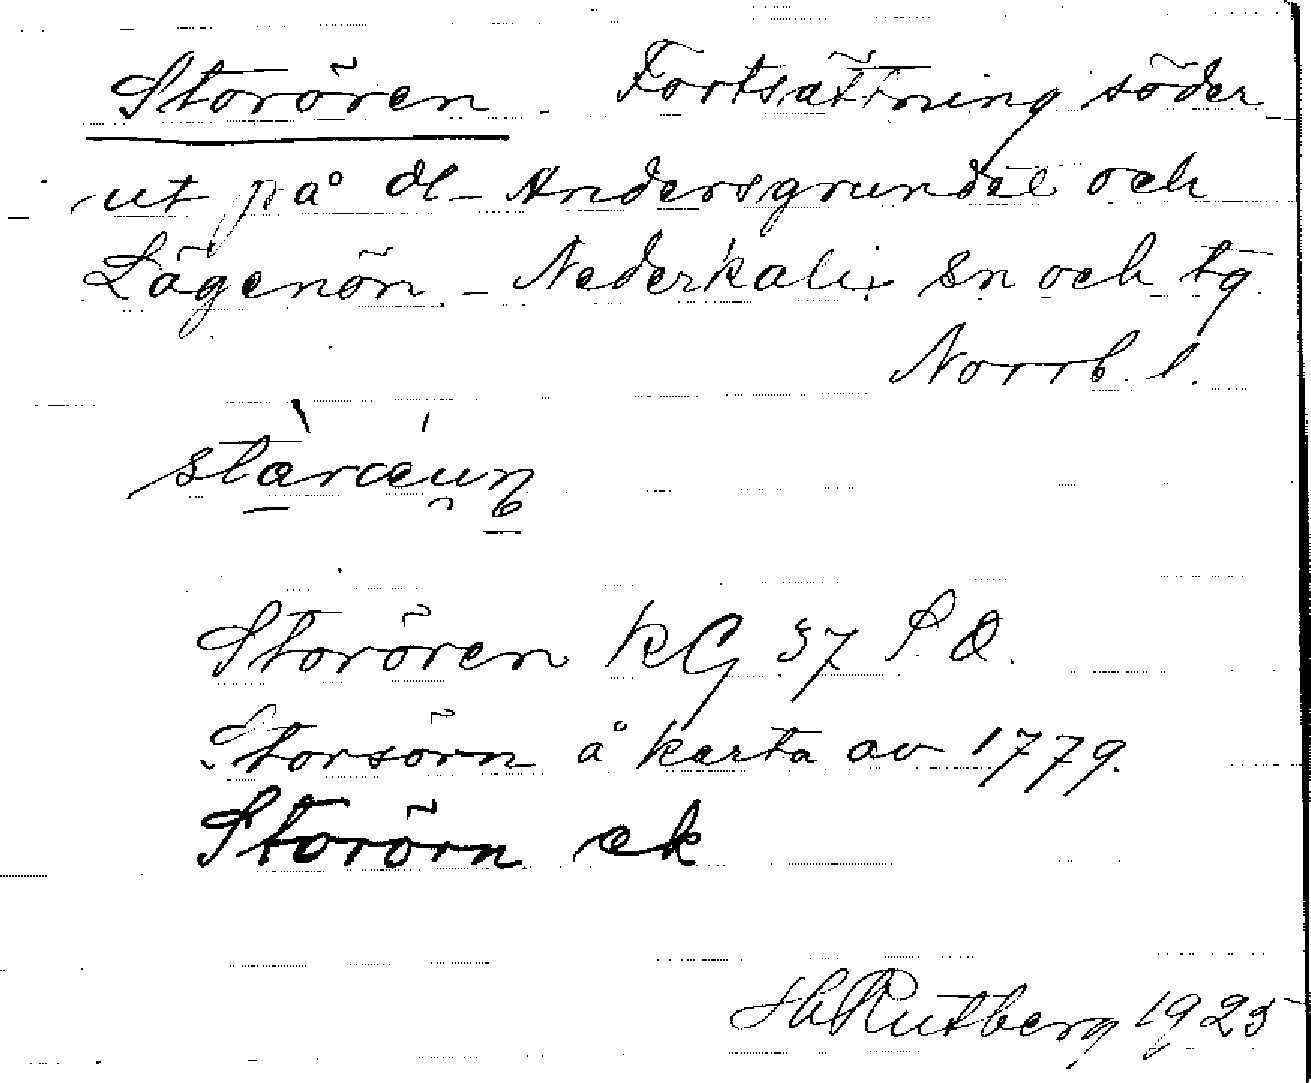 Storören - Fortsättning söder
ut på Ol-Andersgrundet och
Lägenön - Nederkalix sn och tg
Norrb. l.
Storören KG 37 S.O.
Storsörn å karta av 1779.
Storörn ek
H Rutberg 1925